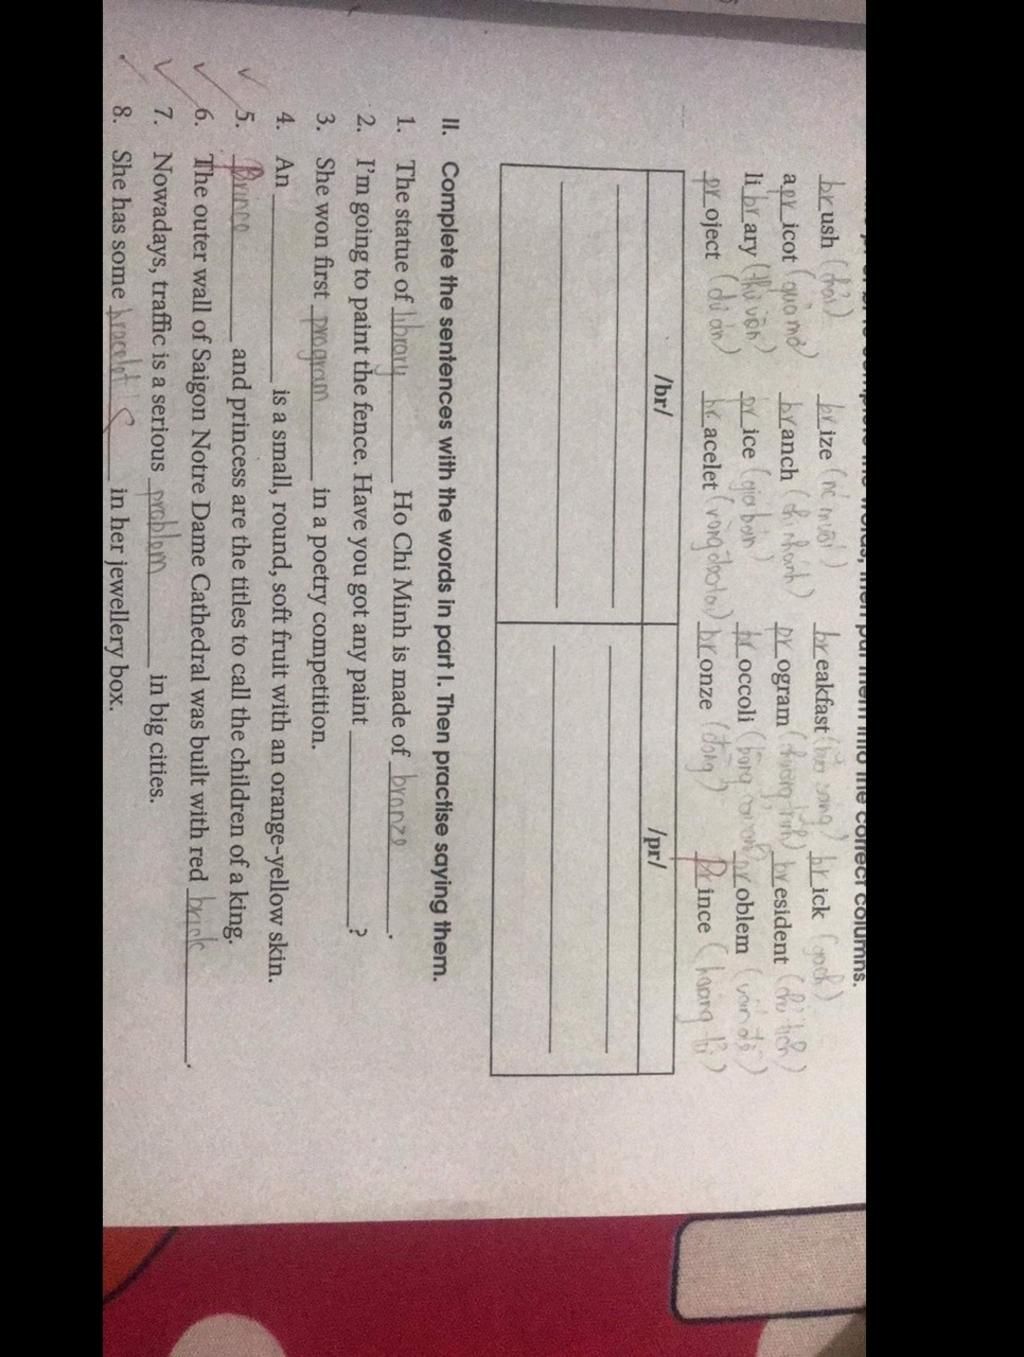 correct columns.
brush (chải) brize breakfast brick (gạch)
apricot (quả mơ) branch (chi nhánh) program bresident (chủ tịch)
library (thư viện) price (giá bán) broccoli problem (vấn đề)
project (dự án) bracelet bronze (đồng) Prince (hoàng tử)
/br/ /pr/
II. Complete the sentences with the words in part I. Then practise saying them.
1. The statue of library Ho Chi Minh is made of bronze.
2. I'm going to paint the fence. Have you got any paint ?
3. She won first program in a poetry competition.
4. An is a small, round, soft fruit with an orange-yellow skin.
5. Prince and princess are the titles to call the children of a king.
6. The outer wall of Saigon Notre Dame Cathedral was built with red brick.
7. Nowadays, traffic is a serious problem in big cities.
8. She has some bracelet S in her jewellery box.